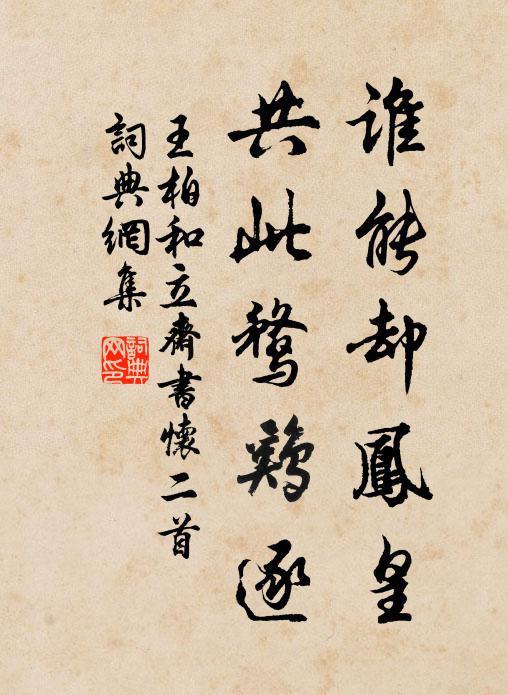 誰能却鳳皇
共此鶩鷄逐
王柏和立齋書懷二首
詞典網集
詞典網印